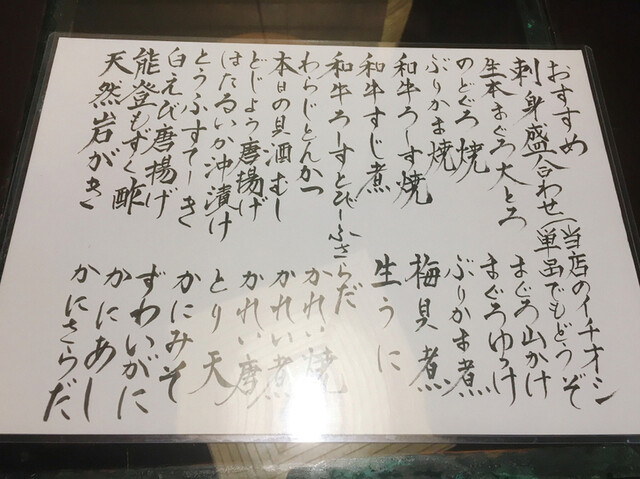 おすすめ
刺身盛合わせ(当店のイチオシ
単品でもどうぞ
生本まぐろ大とろ
のどぐろ焼
ぶりかま焼
和牛ろーす焼
和牛すじ煮
和牛ろーすとびーふさらだ
わらじとんかつ
本日の貝酒むし
どじょう唐揚げ
ほたるいか沖漬け
とうふすてーき
白えび唐揚げ
能登もずく酢
天然岩がき
まぐろ山かけ
まぐろゆっけ
ぶりかま煮
梅貝煮
生うに
かれい焼
かれい煮
かれい唐
とり天
かにみそ
ずわいがに
かにあし
かにさらだ